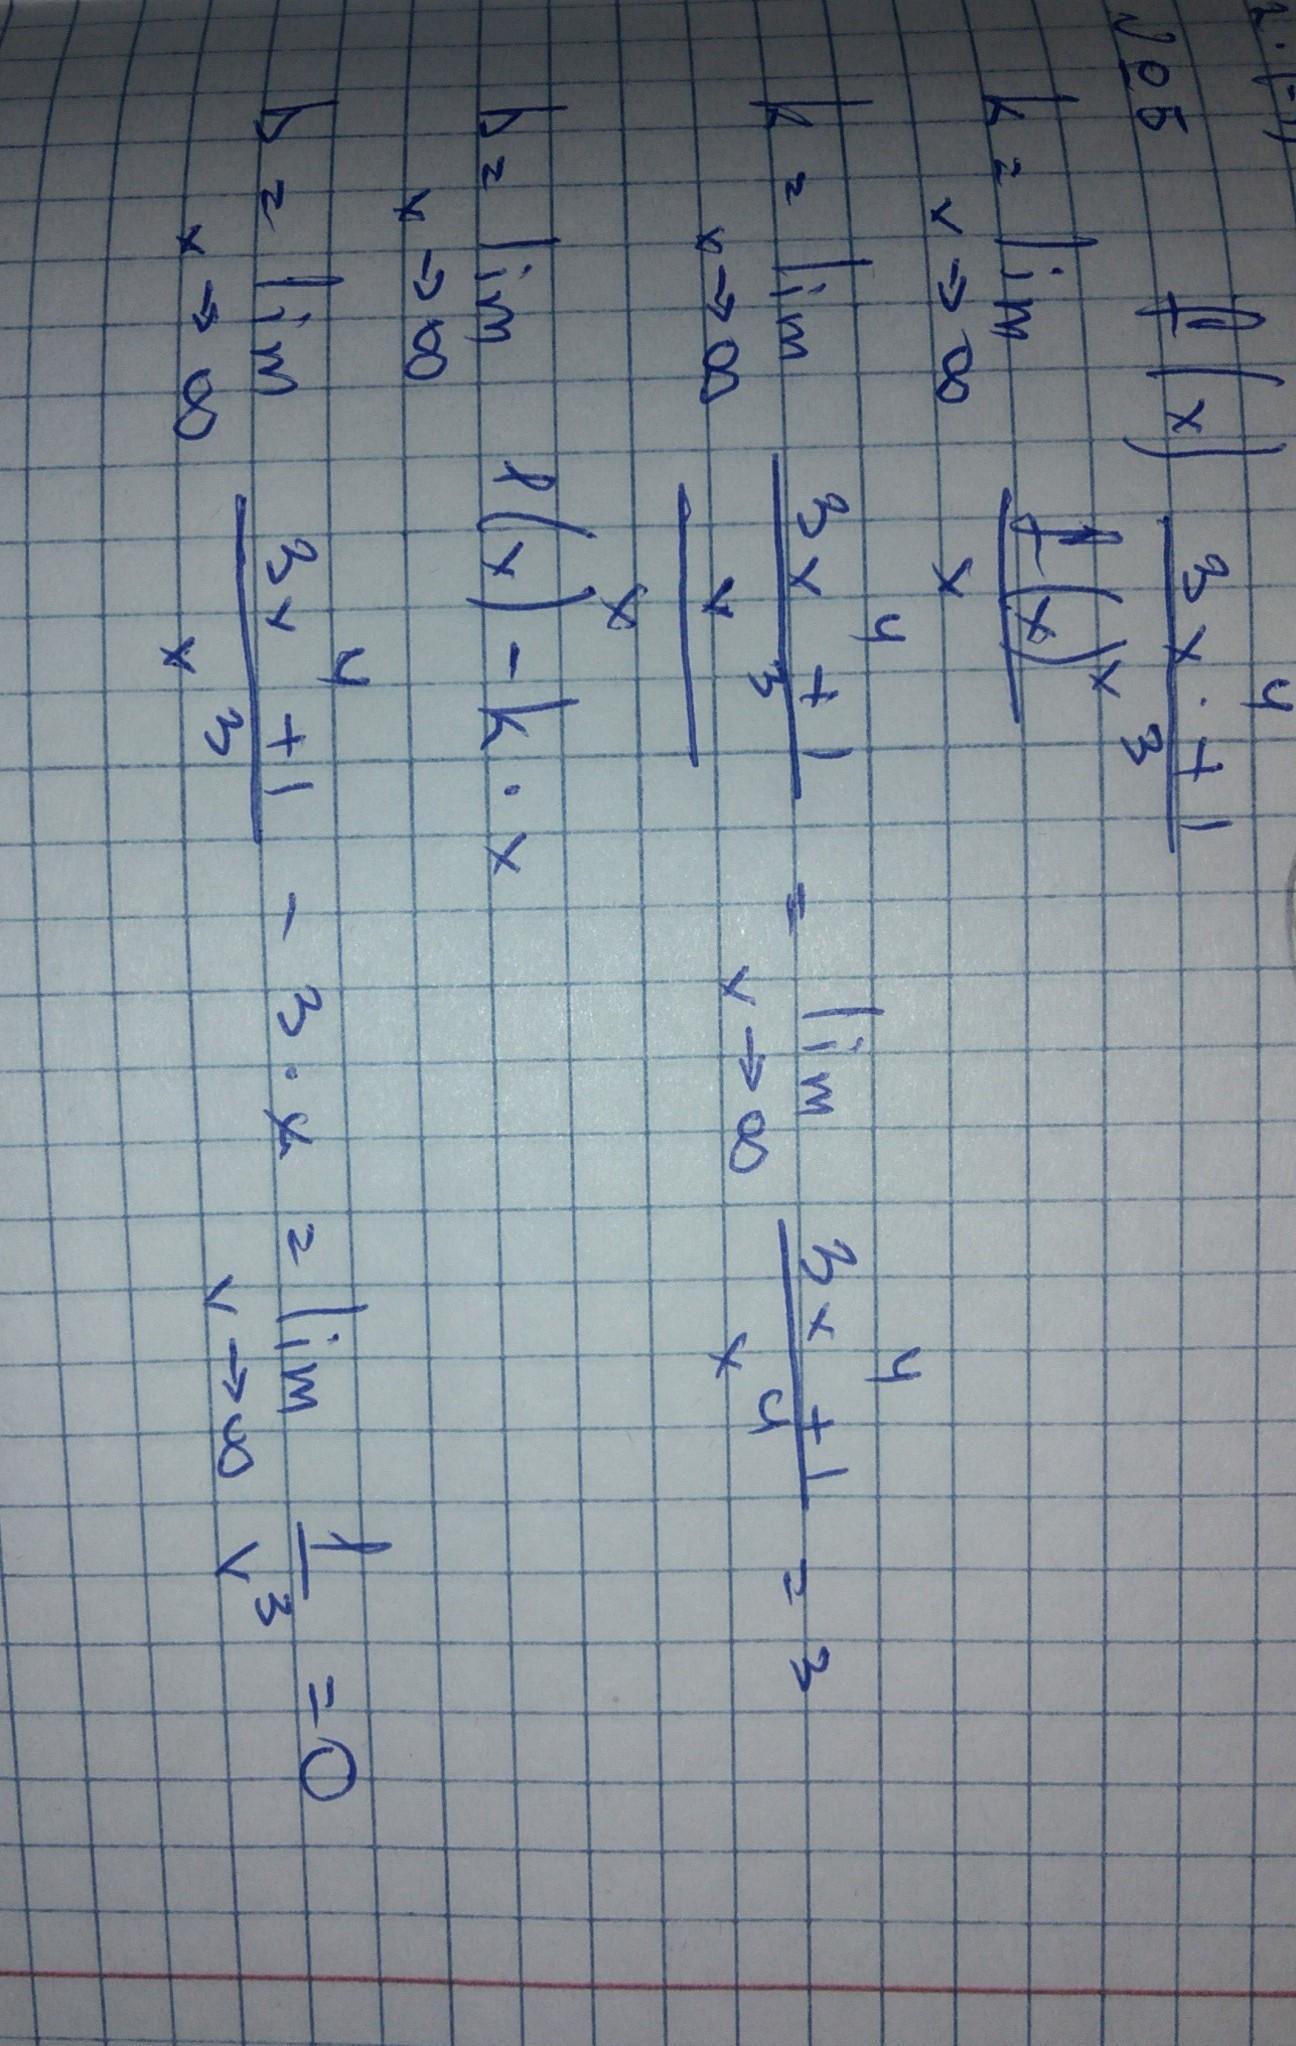 2 · (-1)
№ 5 f(x) 3x⁴ · + 1 / x³
k = lim x→∞ f(x) / x
k = lim x→∞ (3x⁴ + 1 / x³) / x = lim x→∞ 3x⁴ + 1 / x⁴ = 3
b = lim x→∞ f(x) - k · x
b = lim x→∞ 3x⁴ + 1 / x³ - 3 · x = lim x→∞ 1 / x³ = 0